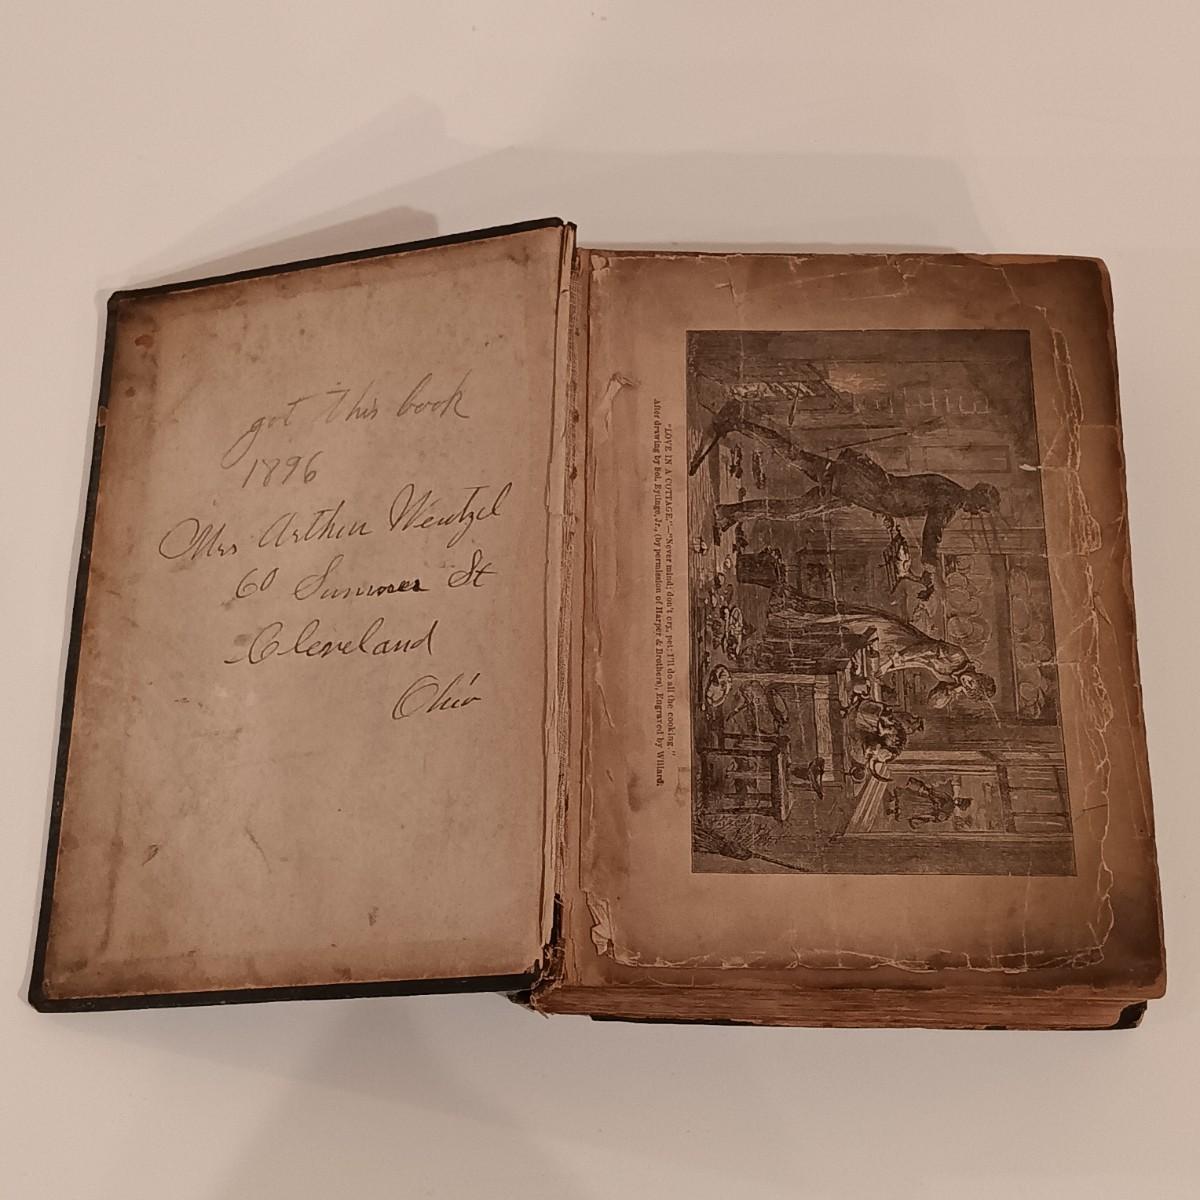 got this book
1896
Mrs Arthur Wentzel
60 Summer St
Cleveland
Ohio
"LOVE IN A COTTAGE."—"Never mind; don't cry, pet; I'll do all the cooking."
After drawing by Sol. Eytinge, Jr., (by permission of Harper & Brothers), Engraved by Willard.